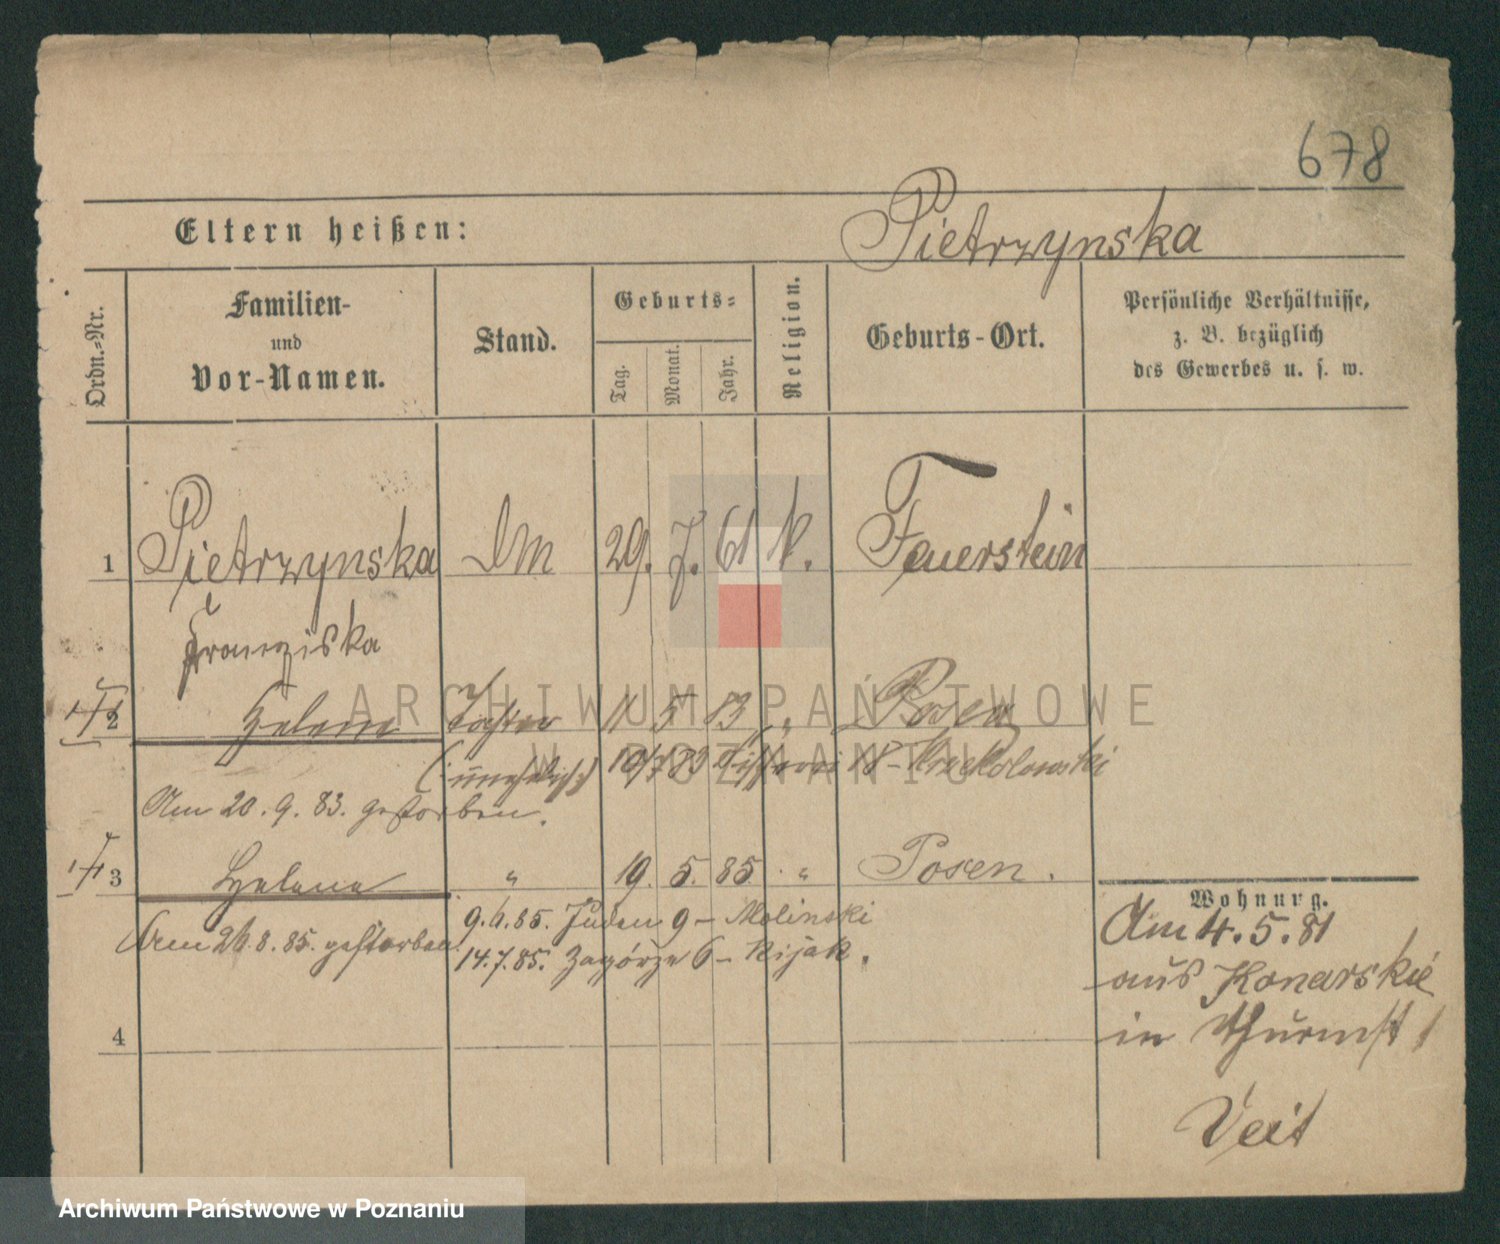 678
Eltern heißen:
Pietrzynska
Ordn.-Nr.
Familien-
und
Vor-Namen.
Stand.
Geburts-
Tag.
Monat.
Jahr.
Religion.
Geburts-Ort.
Persönliche Verhältnisse,
z. B. bezüglich
des Gewerbes u. s. w.
1 Pietrzynska DM 29. 7. 61 k. Feuerstein
Franziska
2 Helene Tochter 11 5 83 " Posen
(unehelich) 10/7 83 18 -
Am 20. 9. 83. gestorben.
3 Helene " 19. 5. 85 " Posen.
9.6.85. Juden 9 - Molinski
Am 26.8.85. gestorben
14.7.85. Zagórze 6 - Kijak.
4
Wohnung.
Am 4.5.81
aus Konarskie
in Thurmst 1
Veit
ARCHIWUM PAŃSTWOWE
W POZNANIU
Archiwum Państwowe w Poznaniu